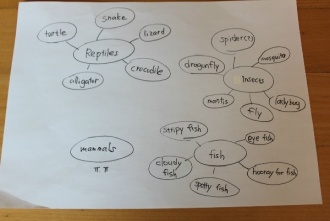 snake
turtle
lizard
Reptiles
alligator
crocodile
dragonfly
mosquito
Insects
mantis
fly
ladybug
mammals
stripy fish
eye fish
cloudy
fish
fish
spotty fish
hooray for fish